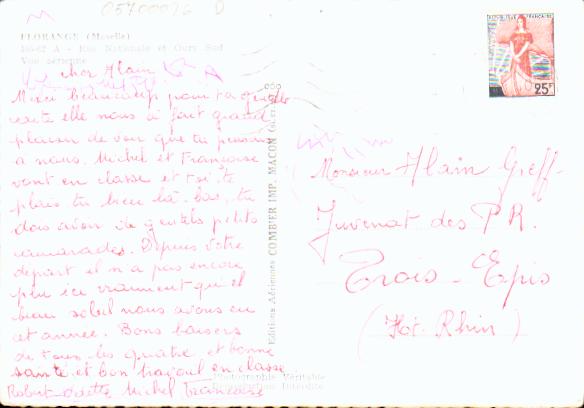 05700096 D
FLORANGE (Moselle)
A - Rue Nationale et Ours Sud
Vue aérienne
cher Alain
Merci beaucoup pour ta gentille
carte elle nous a fait grand
plaisir de voir que tu penses
a nous. Michel et Françoise
vont en classe et toi, te
plais tu bien là-bas, tu
dois avoir de gentils petits
camarades. Depuis votre
depart il n a pas encore
plu ici vraiment quel
beau soleil nous avons eu
cet année. Bons baisers
de tous les quatre et bonne
santé et bon travail en classe
Robert Odette Michel Françoise
Editions Aériennes COMBIER IMP. MACON
Photographie Véritable
Reproduction Interdite
REPUBLIQUE FRANÇAISE
25F
Monsieur Alain Greff
Juvenat des P.R.
Trois-Epis
(Ht Rhin)